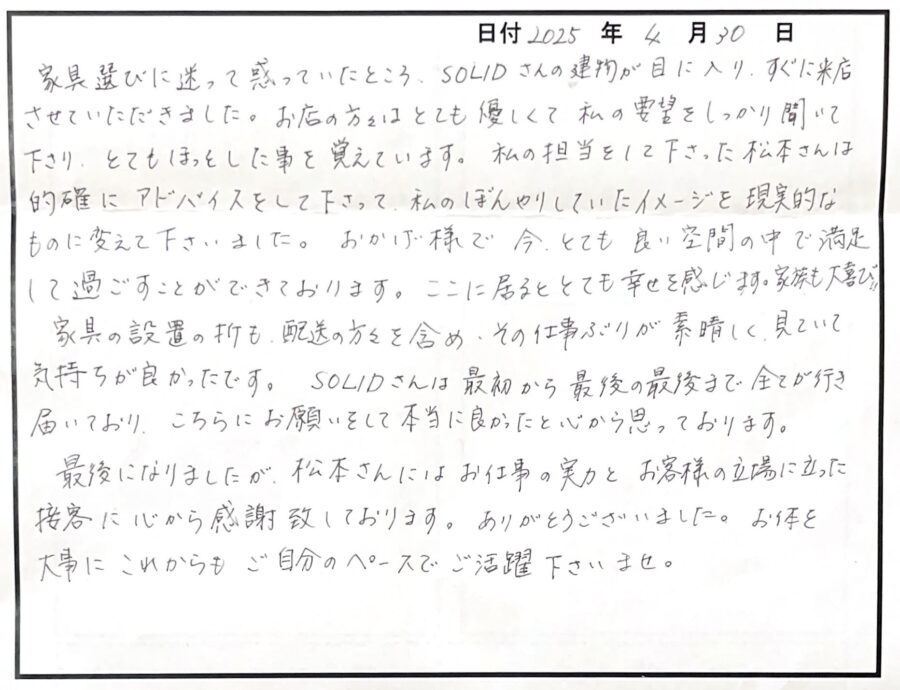 日付 2025 年 4 月 30 日
家具選びに迷って惑っていたところ、SOLIDさんの建物が目に入り、すぐに来店
させていただきました。お店の方々はとても優しくて私の要望をしっかり聞いて
下さり、とてもほっとした事を覚えています。私の担当をして下さった松本さんは
的確にアドバイスをして下さって、私のぼんやりしていたイメージを現実的な
ものに変えて下さいました。おかげ様で今、とても良い空間の中で満足
して過ごすことができております。ここに居るととても幸せを感じます。家族も大喜び!!
家具の設置の折も、配送の方々を含め、その仕事ぶりが素晴しく、見ていて
気持ちが良かったです。SOLIDさんは最初から最後の最後まで全てが行き
届いており、こちらにお願いをして本当に良かったと心から思っております。
最後になりましたが、松本さんにはお仕事の実力とお客様の立場に立った
接客に心から感謝致しております。ありがとうございました。お体を
大事にこれからもご自分のペースでご活躍下さいませ。